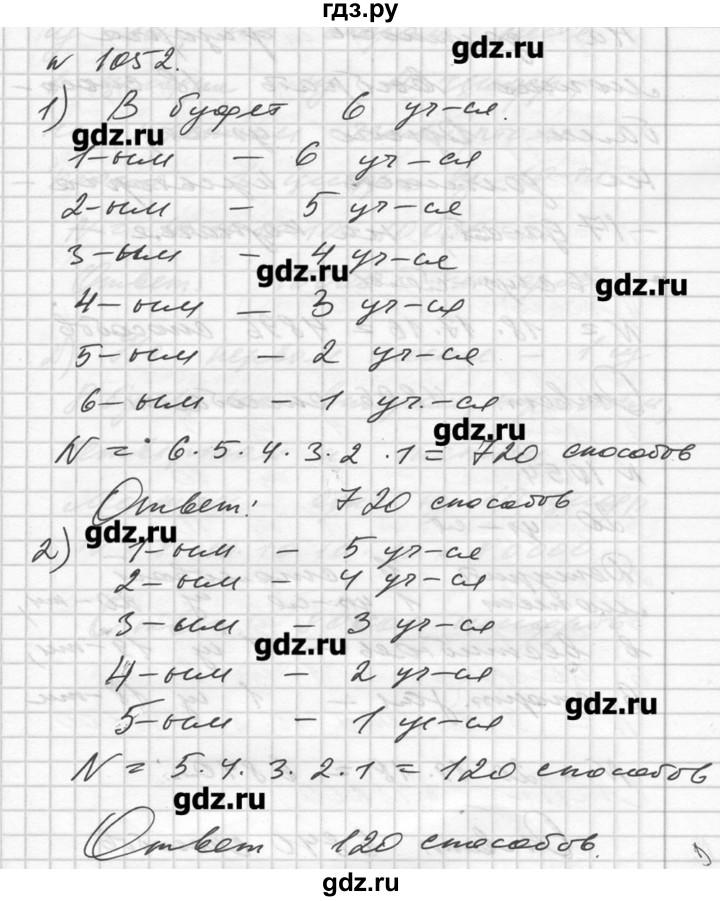 гдз.ру
gdz.ru
№ 1052.
1) В буфет 6 уч-ся.
gdz.ru
1-ым — 6 уч-ся
2-ым — 5 уч-ся
3-ым — 4 уч-ся
gdz.ru
gdz.ru
4-ым — 3 уч-ся
5-ым — 2 уч-ся
6-ым — 1 уч.-ся
gdz.ru
N = 6·5·4·3·2·1 = 720 способов
Ответ: 720 способов
gdz.ru
2) 1-ым — 5 уч-ся
2-ым — 4 уч-ся
3-ым — 3 уч-ся
gdz.ru
4-ым — 2 уч-ся
gdz.ru
5-ым — 1 уч-ся
N = 5·4·3·2·1 = 120 способов
gdz.ru
Ответ 120 способов.
gdz.ru